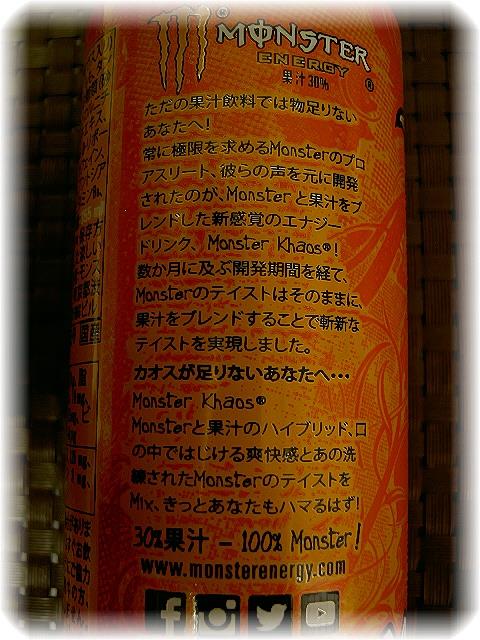 MONSTER
ENERGY
果汁30%
ただの果汁飲料では物足りない
あなたへ!
常に極限を求めるMonsterのプロ
アスリート、彼らの声を元に開発
されたのが、Monsterと果汁をブ
レンドした新感覚のエナジー
ドリンク、Monster Khaos®!
数か月に及ぶ開発期間を経て、
Monsterのテイストはそのままに、
果汁をブレンドすることで斬新な
テイストを実現しました。
カオスが足りないあなたへ…
Monster Khaos®
Monsterと果汁のハイブリッド、口
の中ではじける爽快感とあの洗
練されたMonsterのテイストを
Mix、きっとあなたもハマるはず!
30%果汁 - 100% Monster!
www.monsterenergy.com